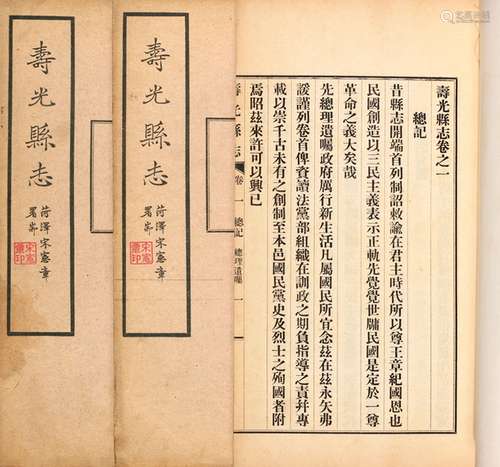 壽光縣志卷之一
總記
昔縣志開端首列制詔敕諭在君主時代所以尊王章紀國恩也
民國創造以三民主義表示正軌先覺覺世牖民國是定於一尊
革命之義大矣哉
先總理遺囑政府厲行新生活凡屬國民所宜念茲在茲永矢弗
諼謹列卷首俾資讀法黨部組織在訓政之期負指導之責幷專
載以崇千古未有之創制至本邑國民黨史及烈士之殉國者附
焉昭茲來許可以興已
壽光縣志
卷一
總記
總理遺囑
一
壽光縣志
菏澤宋憲章
署耑
宋憲章印
壽光縣志
菏澤宋憲章
署耑
宋憲章印